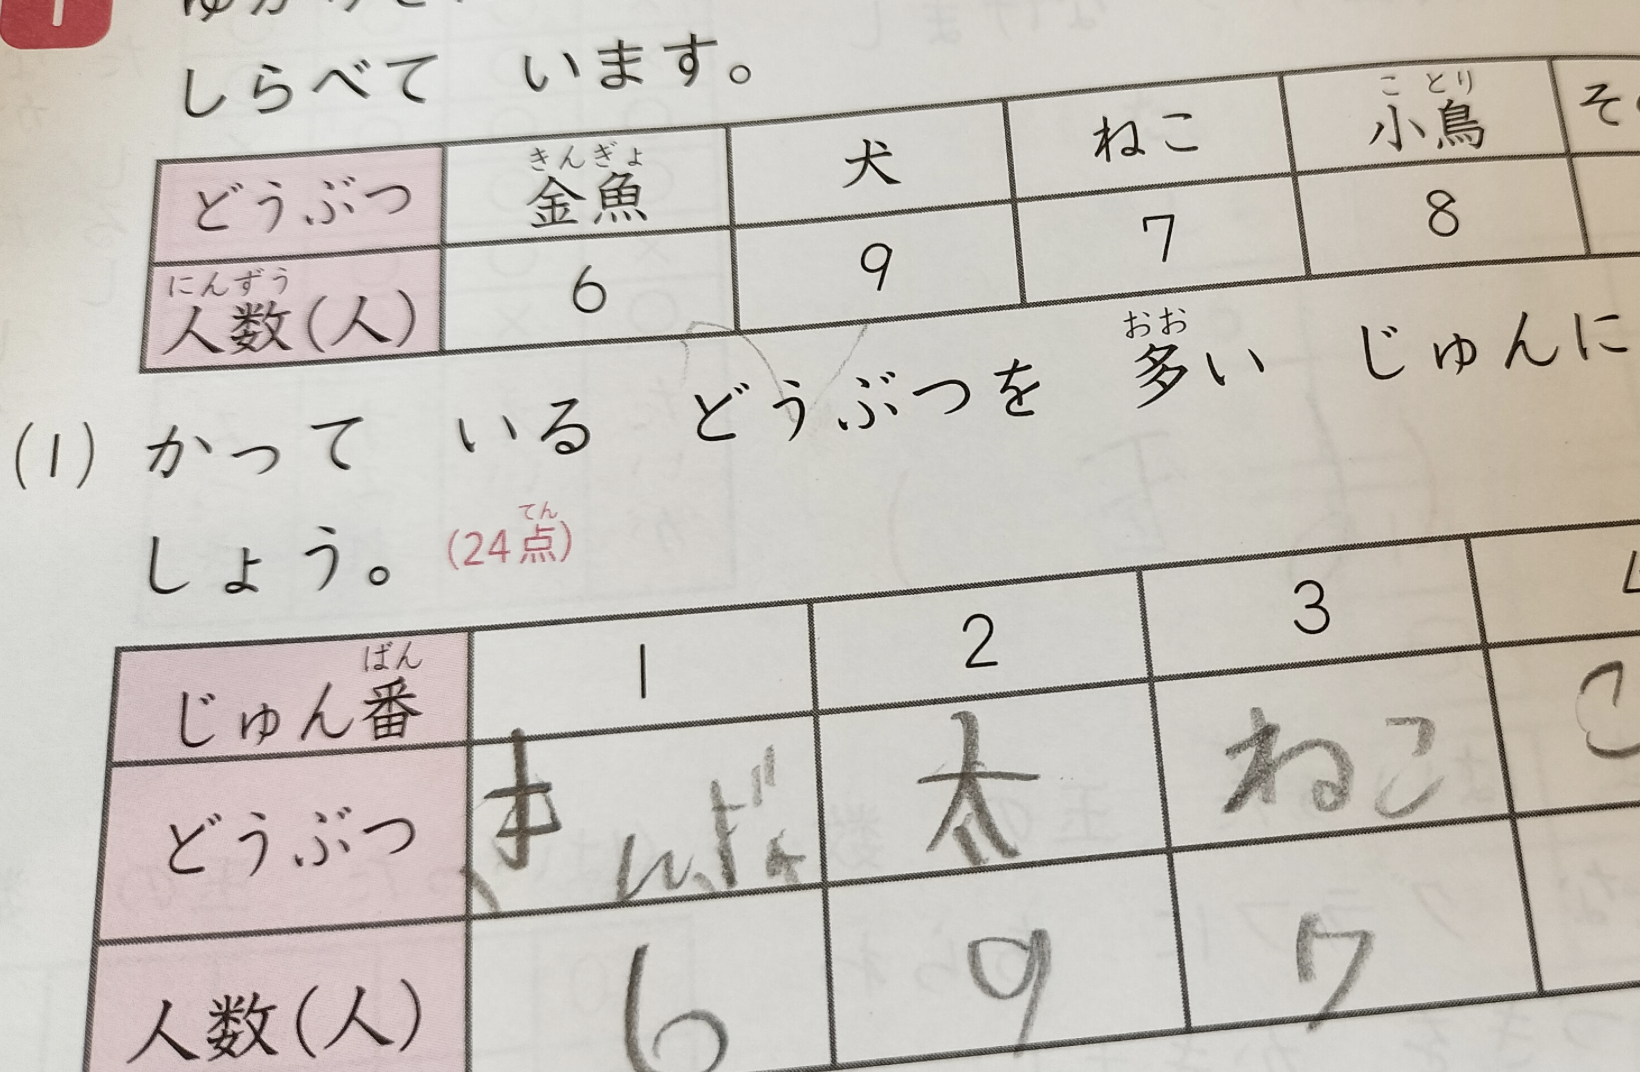 しらべて います。
どうぶつ 金魚 犬 ねこ 小鳥
きんぎょ ことり
人数(人) 6 9 7 8
にんずう
(1) かって いる どうぶつを 多い じゅんに
おお
しょう。(24点)
てん
じゅん番 1 2 3
ばん
どうぶつ きんぎょ 太 ねこ こ
人数(人) 6 9 7